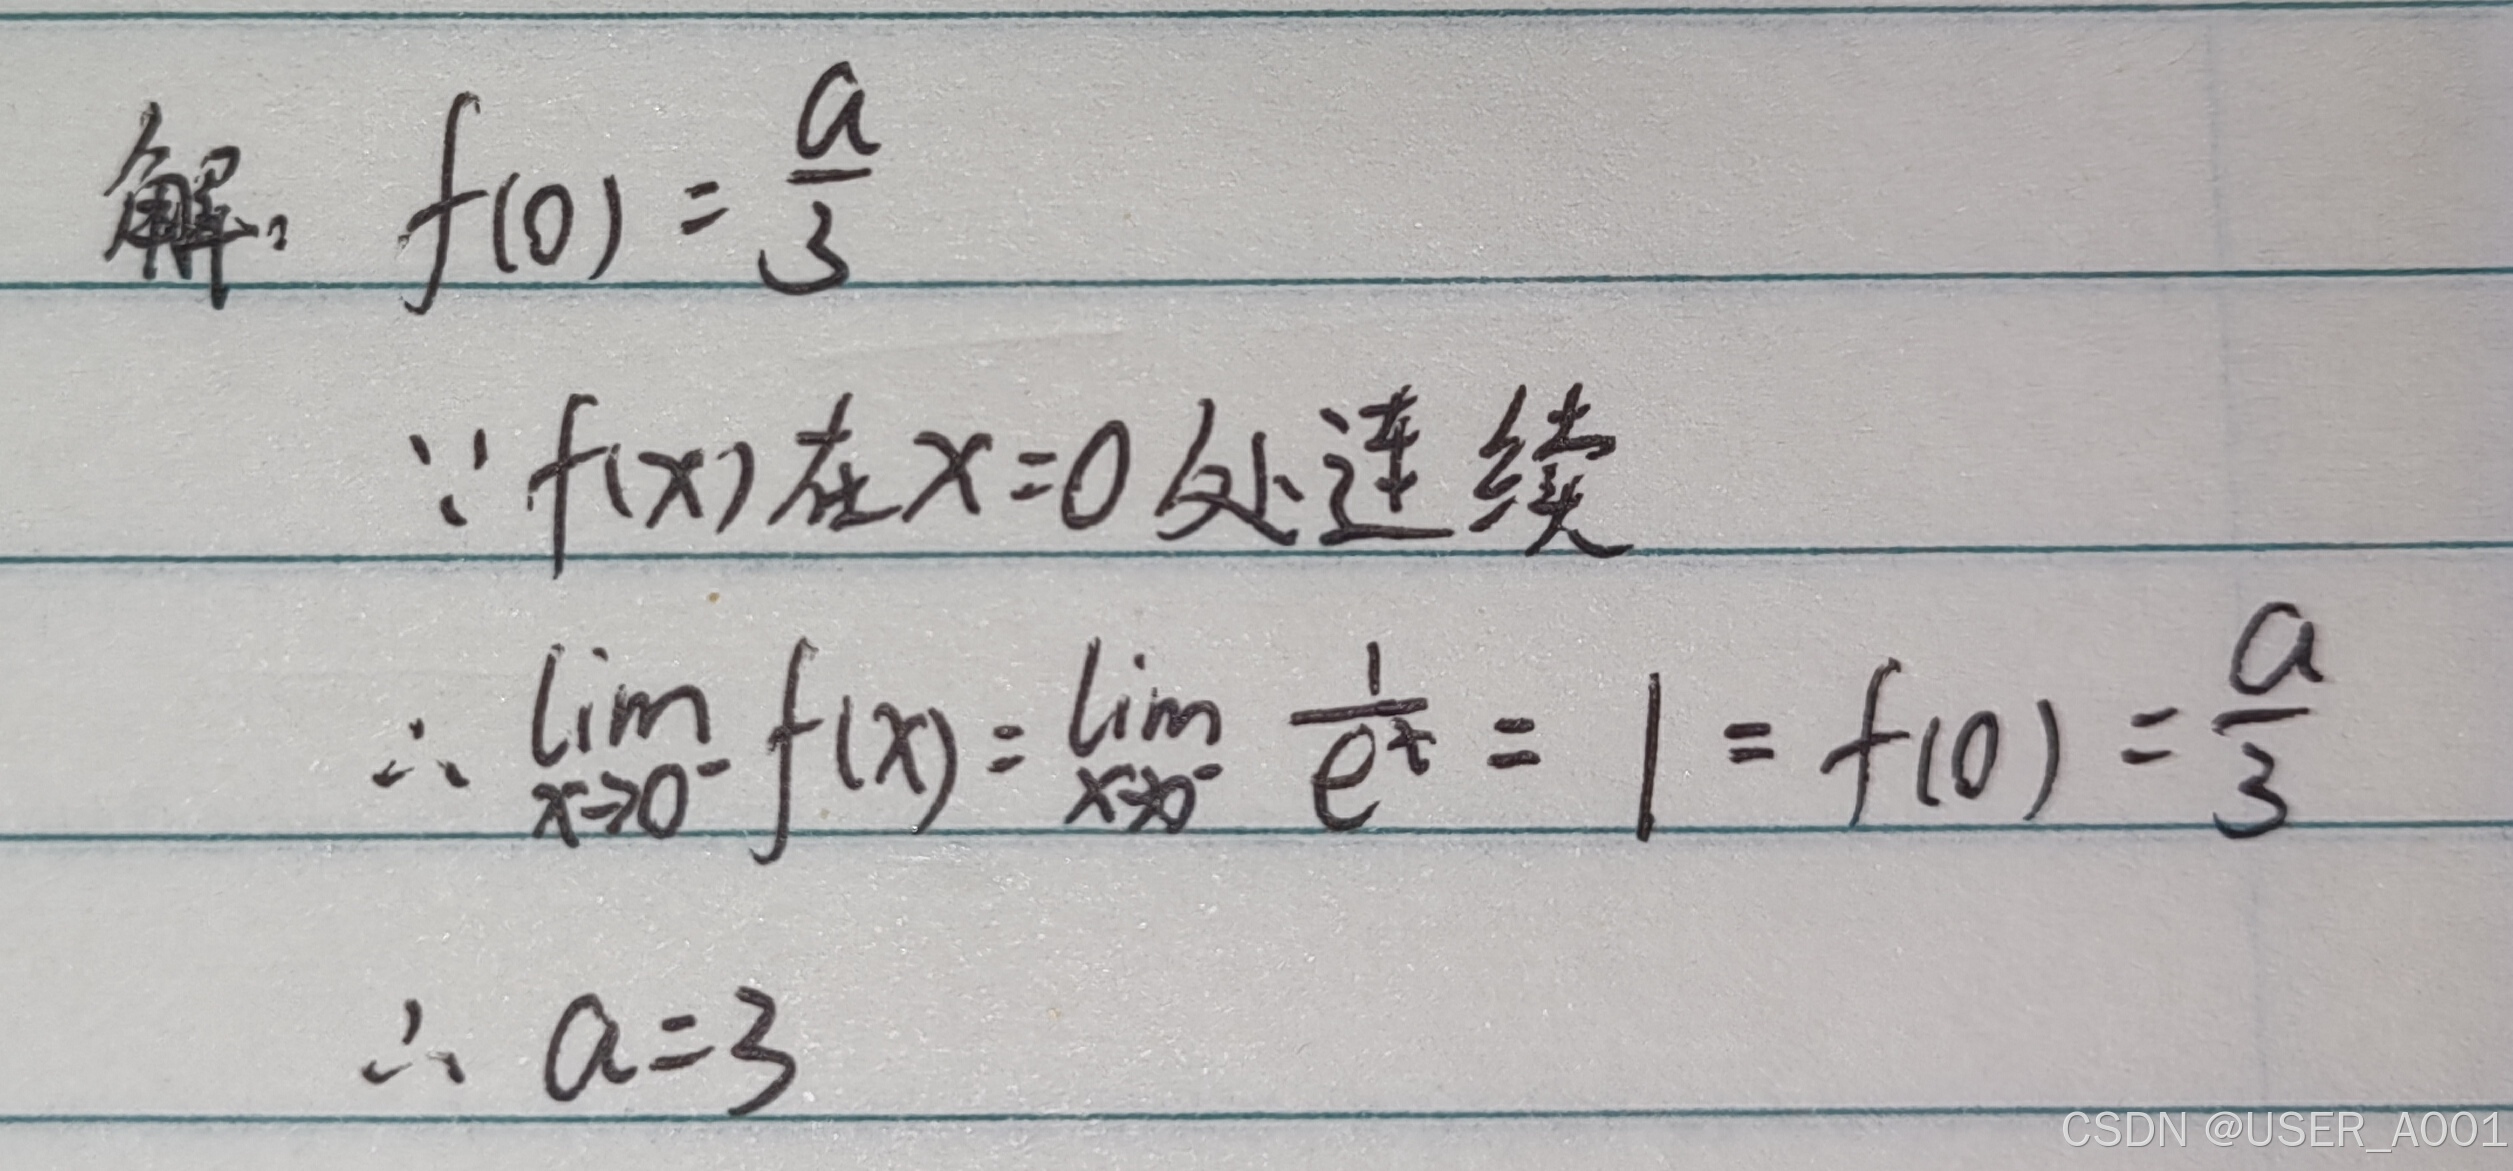 解: f(0) = a/3
∵ f(x)在x=0处连续
∴ lim x→0⁻ f(x) = lim x→0⁻ 1/eˣ = 1 = f(0) = a/3
∴ a=3
CSDN @USER_A001